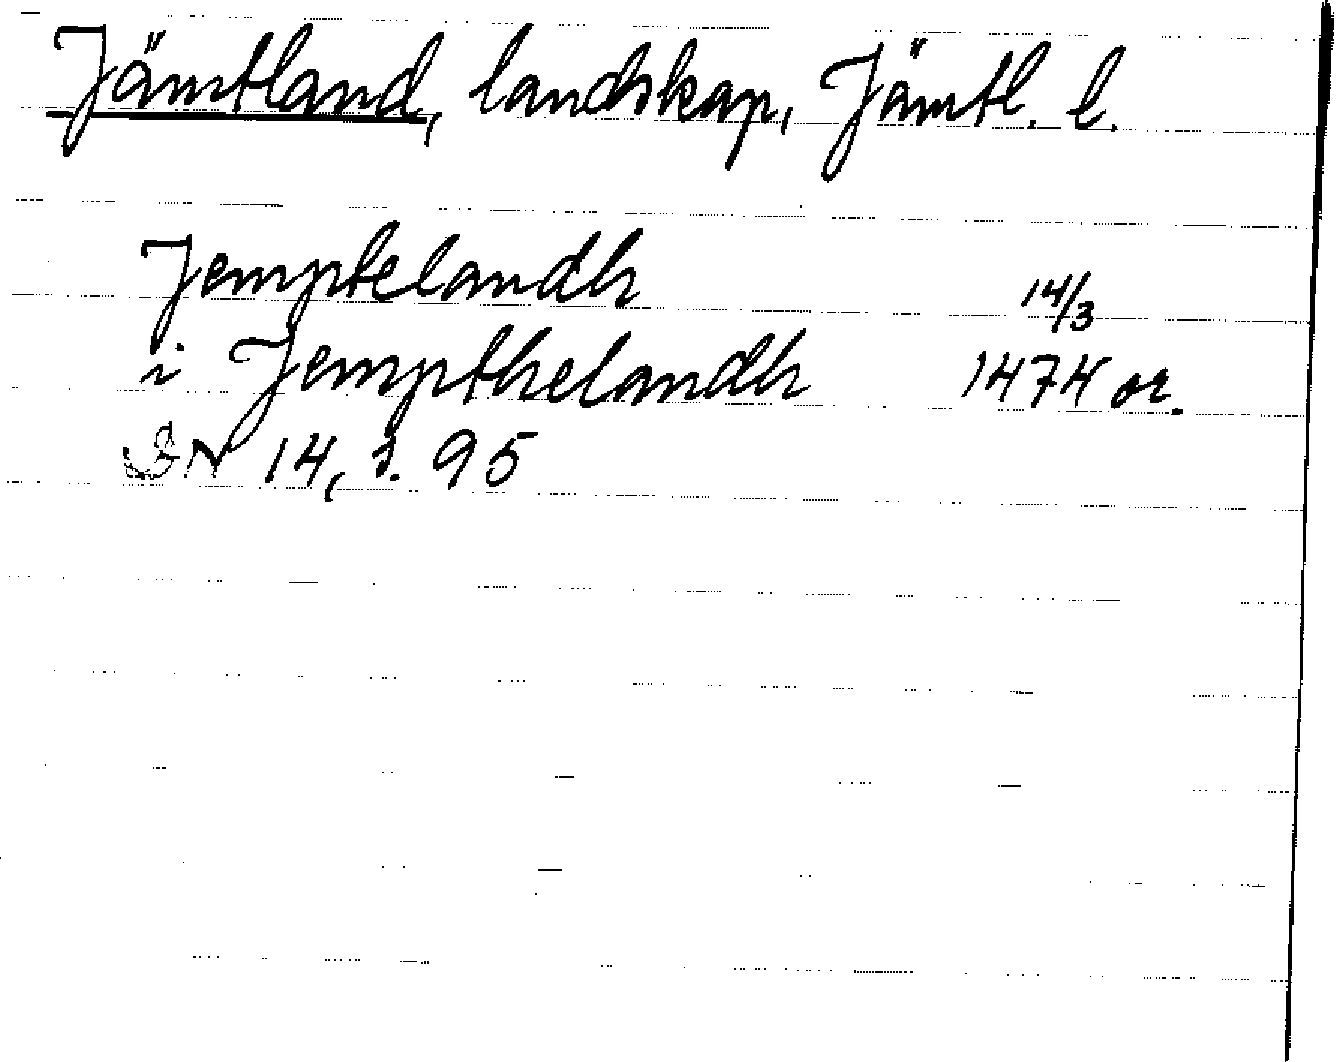 Jämtland, landskap, Jämtl. l.
Jemptelandh 14/3
i Jempthelandh 1474 or.
DN 14, s. 95